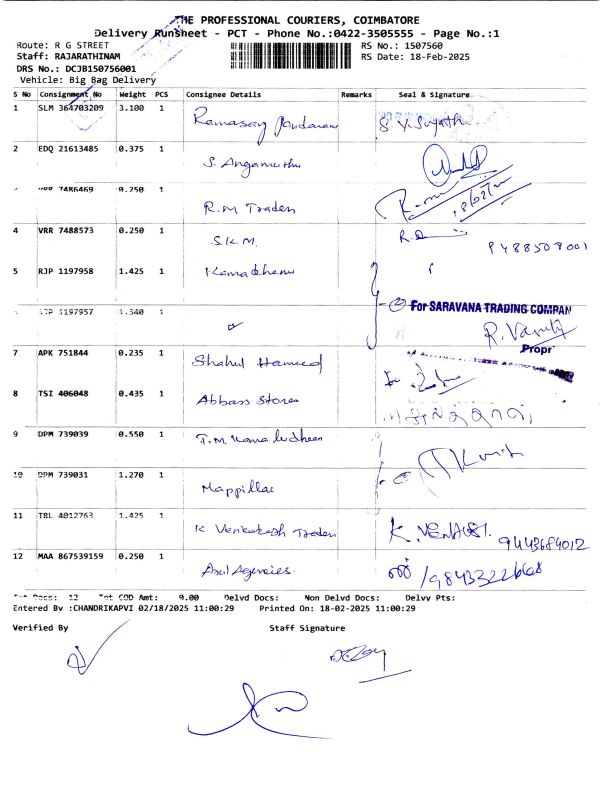 THE PROFESSIONAL COURIERS, COIMBATORE
Delivery Runsheet - PCT - Phone No.:0422-3505555 - Page No.:1
Route: R G STREET RS No.: 1507560
Staff: RAJARATHINAM RS Date: 18-Feb-2025
DRS No.: DCJB150756001
Vehicle: Big Bag Delivery
S No Consignment No Weight PCS Consignee Details Remarks Seal & Signature
1 SLM 364703209 3.100 1
2 EDQ 21613485 0.375 1 S. Angamuthu
7486469 0.250 1 R.M Traders
4 VRR 7488573 0.250 1 S.K.M.
5 RJP 1197958 1.425 1 Kamadhenu
1197957 1.340 1
For SARAVANA TRADING COMPAN
Propr
7 APK 751844 0.235 1 Shahul Hameed
8 TSI 406048 0.435 1 Abbass Stores
9 DPM 739039 0.550 1 T.M Kamaludheen
10 DPM 739031 1.270 1 Mappillai
11 TRL 4012763 1.425 1 K. Venkatesh Traders 9443684012
12 MAA 867539159 0.250 1 Arul Agencies.
Tot Docs: 12 Tot COD Amt: 0.00 Delvd Docs: Non Delvd Docs: Delvy Pts:
Entered By :CHANDRIKAPVI 02/18/2025 11:00:29 Printed On: 18-02-2025 11:00:29
Verified By Staff Signature